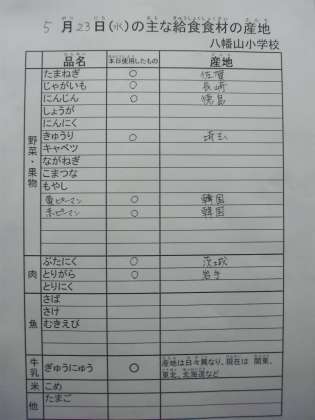 5月23日(水)の主な給食食材の産地
八幡山小学校
品名 本日使用したもの 産地
野菜・果物
たまねぎ ○ 佐賀
じゃがいも ○ 長崎
にんじん ○ 徳島
しょうが
にんにく
きゅうり ○ 埼玉
キャベツ
ながねぎ
こまつな
もやし
黄ピーマン ○ 韓国
赤ピーマン ○ 韓国
肉
ぶたにく ○ 茨城
とりがら ○ 岩手
とりにく
魚
さば
さけ
むきえび
牛乳
ぎゅうにゅう ○ 産地は日々異なり、現在は 関東、
東北、北海道など
米 こめ
他 たまご